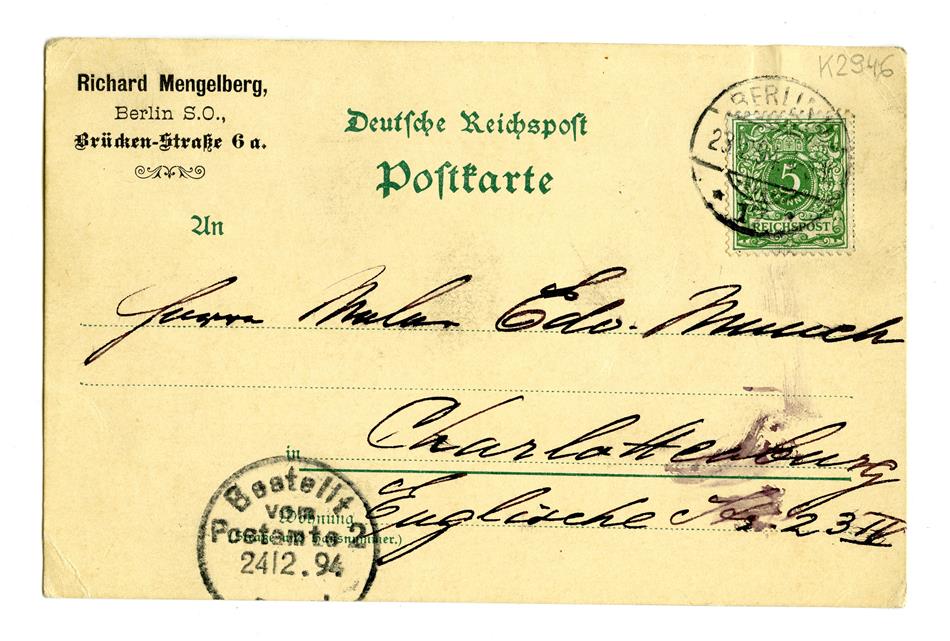 K2946
Richard Mengelberg,
Berlin S.O.,
Brücken-Straße 6a.
Deutsche Reichspost
Postkarte
BERLIN
5
REICHSPOST
An
Herrn Maler Edv. Munch
in Charlottenburg
Wohnung
(Straße und Hausnummer.)
Englische Str. 23 IV
Bestellt
vom
Postamte 2
24/2.94